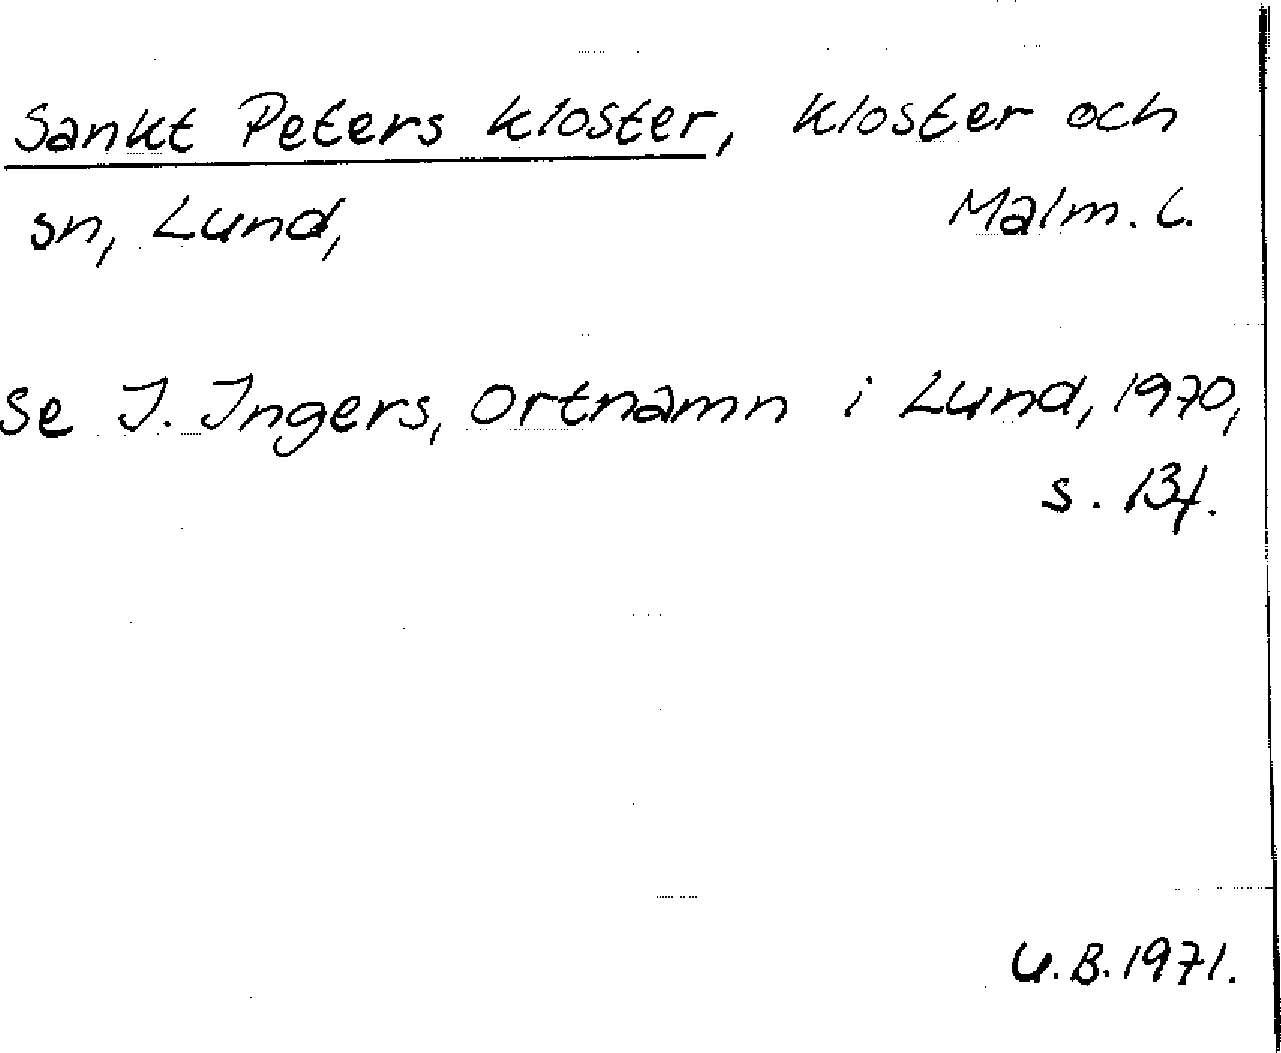 Sankt Peters kloster, kloster och
sn, Lund, Malm. L.
Se I. Ingers, Ortnamn i Lund, 1970,
s. 13f.
U.B. 1971.